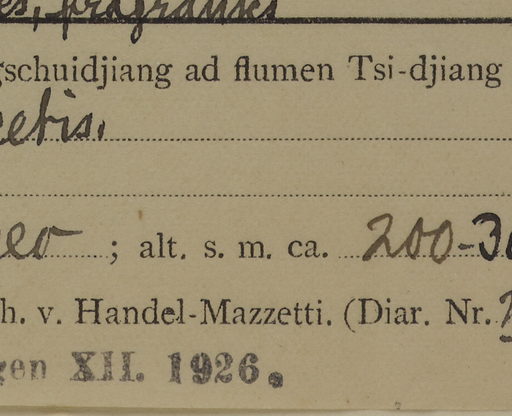 es, fragrantes
gschuidjiang ad flumen Tsi-djiang
cetis.
eo ; alt. s. m. ca. 200-30
h. v. Handel-Mazzetti. (Diar. Nr.
gen XII. 1926.